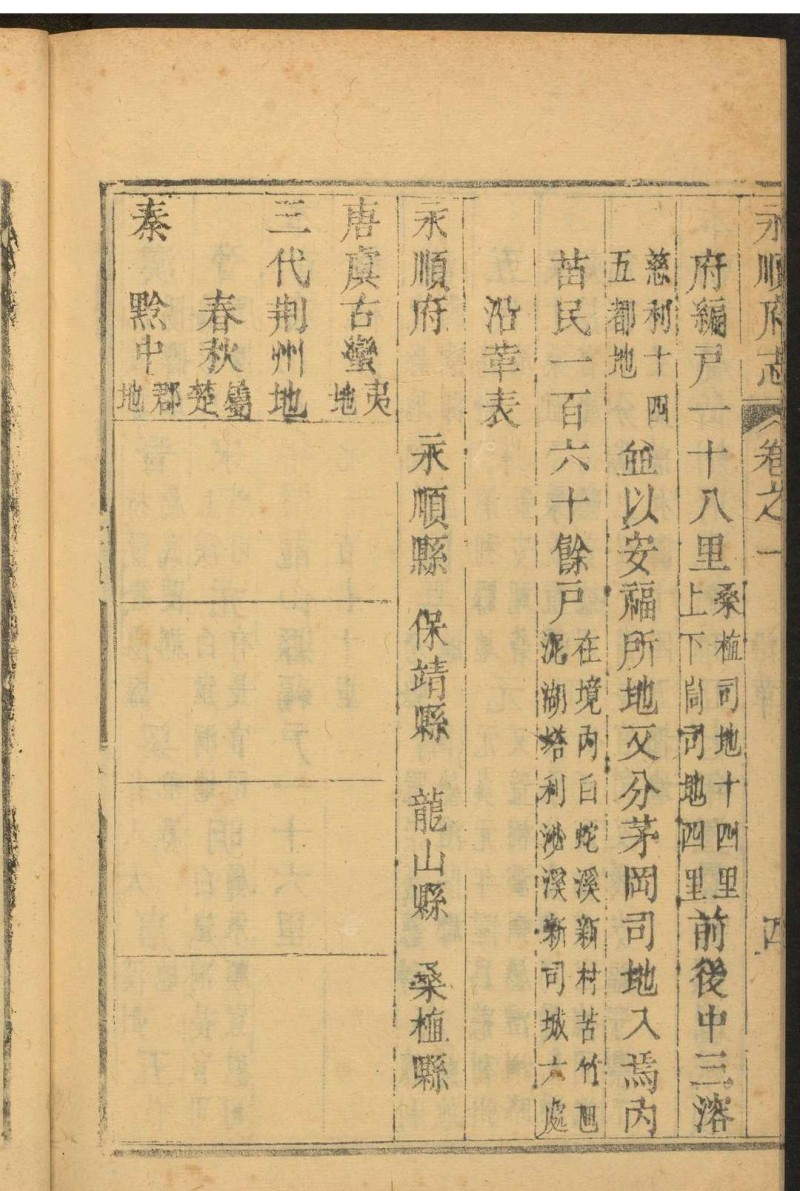 永順府志 卷之一 四
府編戸一十八里桑植司地十四里上下峝司地四里前後中三溶
慈利十四五都地並以安福所地又分茅岡司地入焉內
苗民一百六十餘戸在境內白蛇溪新村苦竹旭泥湖塔利沙溪新司城六處
沿革表
永順府 永順縣 保靖縣 龍山縣 桑植縣
唐虞古蠻夷地
三代荆州地
春秋屬楚
秦 黔中郡地